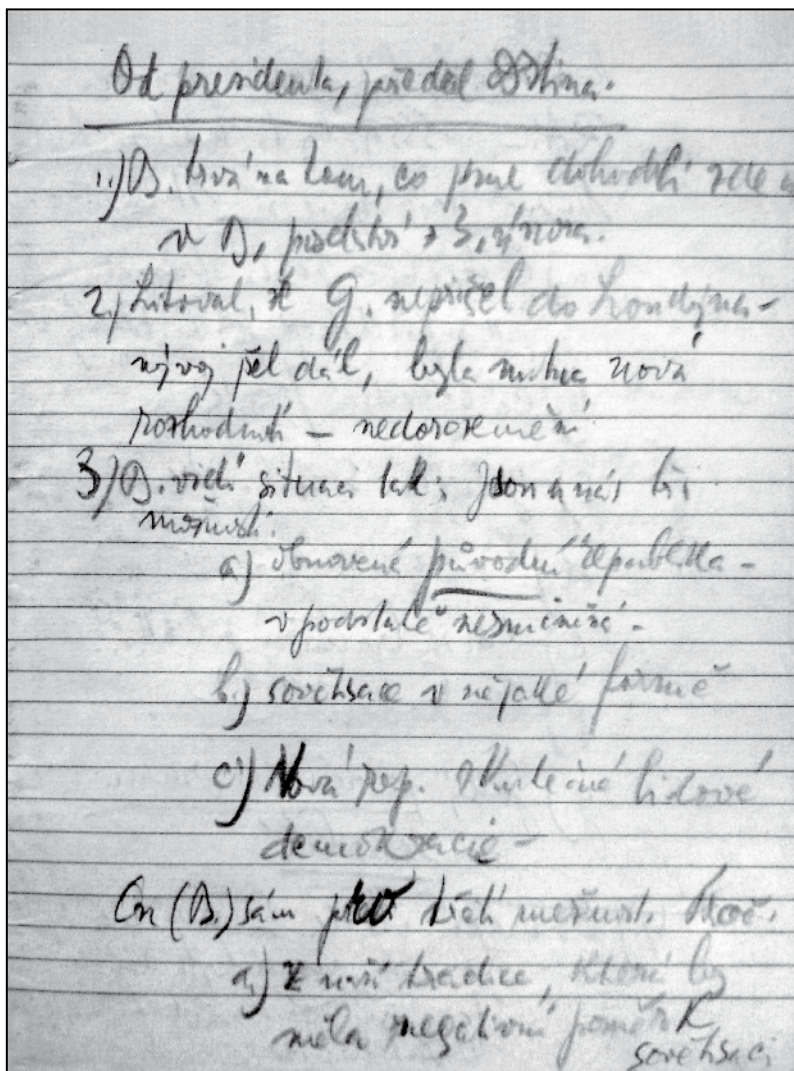 Od presidenta, předal Drtina.
1.) B. trvá na tom, co jsme dohodli zde a
v B,
2.) Litoval, že G. nepřišel do Londýna –
vývoj šel dál, byla nutna nová
rozhodnutí – nedorozumění
3) B. vidí situaci tak: Jsou u nás tři
možnosti:
a) obnovená původní republika –
v podstatě nezměněná –
b.) sovětisace v nějaké formě
c) Nová rep. skutečné lidové
demokracie –
On (B.) sám pro třetí možnost.
a.) z naší tradice, která by
měla negativní poměr k
sovětisaci